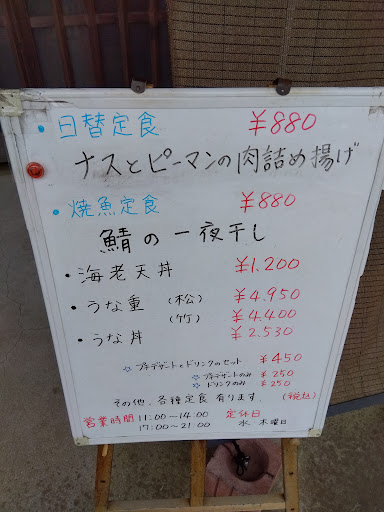 ・日替定食 ¥880
ナスとピーマンの肉詰め揚げ
・焼魚定食 ¥880
鯖の一夜干し
・海老天丼 ¥1.200
・うな重 (松) ¥4.950
(竹) ¥4.400
・うな丼 ¥2.530
☆ プチデザートとドリンクのセット ¥450
☆ プチデザートのみ ¥250
☆ ドリンクのみ ¥250
その他、各種定食 有ります。 (税込)
営業時間 11:00〜14:00 定休日
17:00〜21:00 水 木曜日